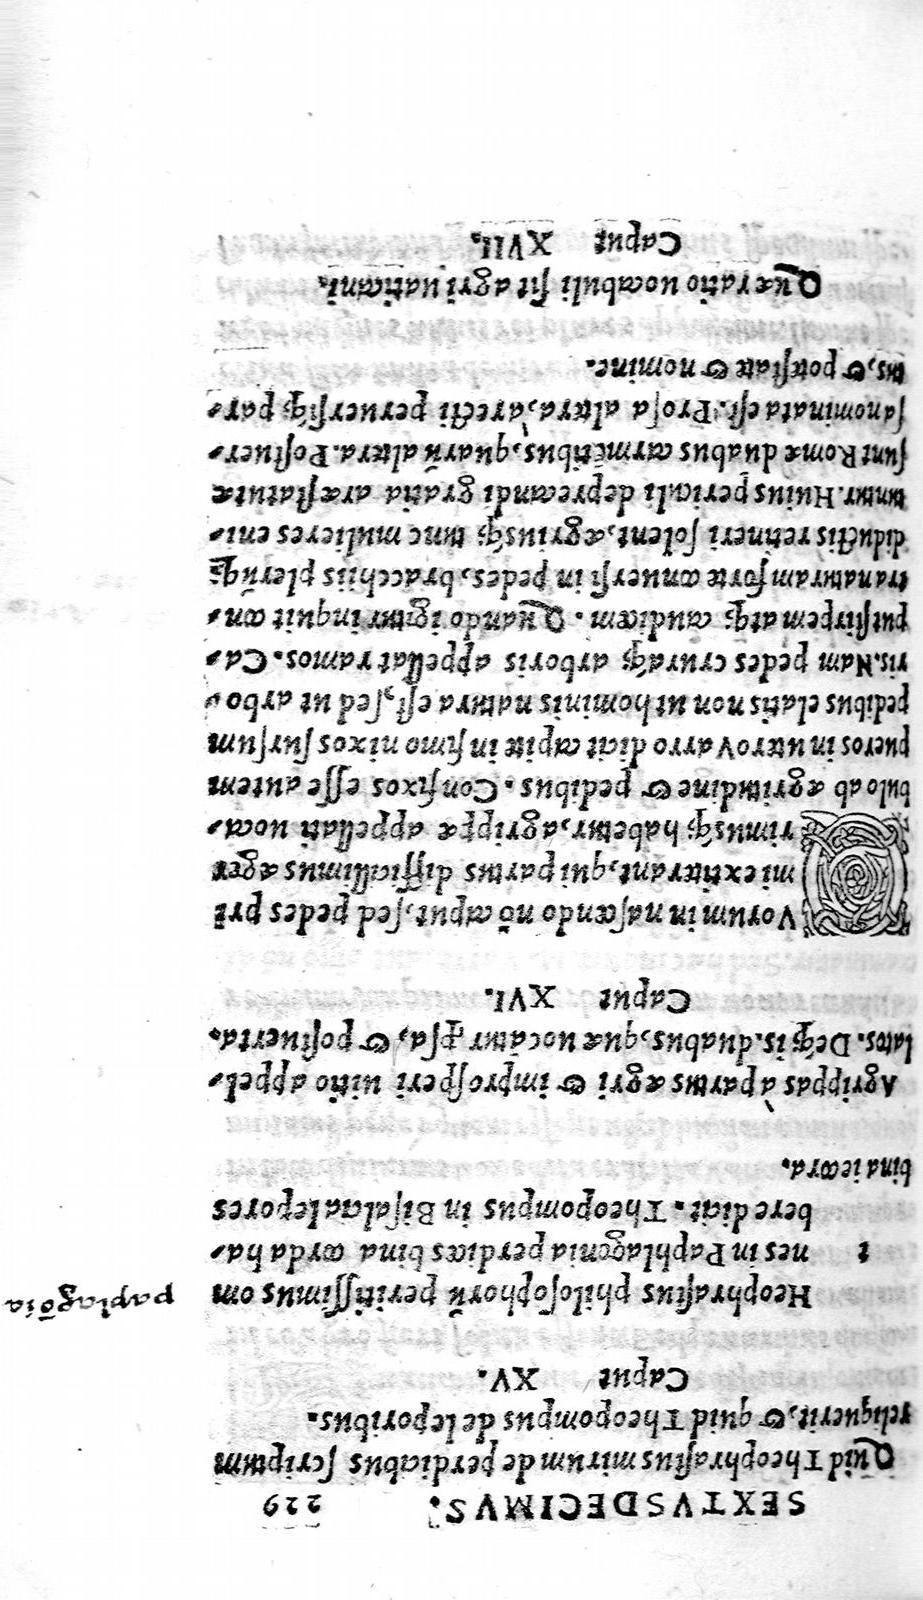 SEXTVSDECIMVS. 229
Quid Theophraſtus mirum de perdicibus ſcriptum
reliquerit, & quid Theopompus de leporibus.
Caput XV.
Heophraſtus philoſophorũ peritiſſimus om
paplagõia
t nes in Paphlagonia perdices bina corda ha-
bere dicit. Theopompus in Biſaltia lepores
bina iecora.
Agrippas à partus ægri & improſperi uitio appel-
latos. Deq́; is. duabus, quæ uocantur ꝓſa, & poſtuerta.
Caput XVI.
Vorum in naſcendo nõ caput, ſed pedes pri
mi extiterant, qui partus difficillimus æger
rimusq́; habetur, agrippæ appellati uoca-
bulo ab ægritudine & pedibus. Confixos eſſe autem
pueros in utero Varro dicit capite infimo nixos ſurſum
pedibus elatis non ut hominis natura eſt, ſed ut arbo-
ris. Nam pedes cruraq́; arboris appellat ramos. Ca-
put ſtirpem atq́; caudicem. Quando igitur inquit con-
tra naturam forte conuerſi in pedes, bracchiis plerũq́;
diductis retineri ſolent, ægriusq́; tunc mulieres eni-
tuntur. Huius periculi deprecandi gratia aræ ſtatutæ
ſunt Romæ duabus carmẽtibus, quarũ altera. Poſtuer-
ſa nominata eſt. Proſa altera, à recti peruerſiq́; par-
tus, & poteſtate & nomine.
Quæ ratio uocabuli ſit agri uaticani.
Caput XVII.